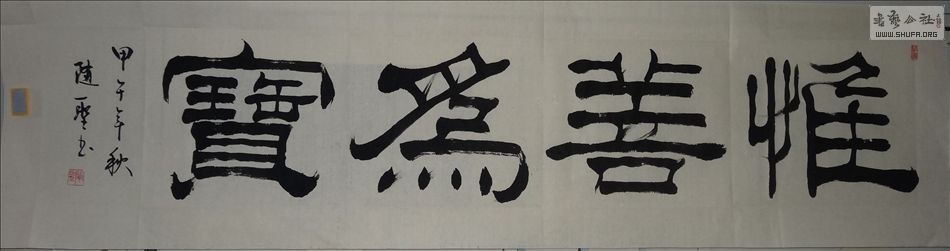 惟善為寶
甲午年秋
随一聖书
書藝公社
WWW.SHUFA.ORG